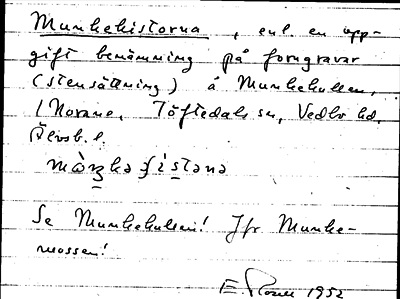 Munkekistorna, enl. en upp-
gift benämning på forngravar
(stensättning) å Munkekullen,
i Norane, Töftedals sn, Vedbo hd,
Älvsb. l.
Se Munkekullen! Jfr Munke-
mossen!
1952